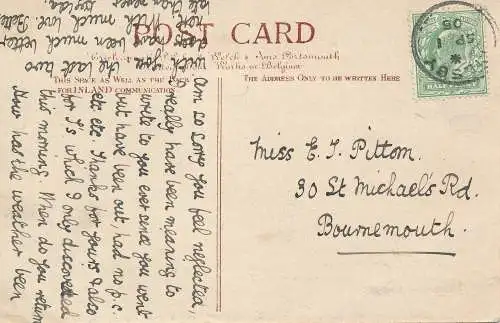 POST CARD
Welch & Sons Portsmouth
Works in Belgium
THIS SPACE AS WELL AS THE BACK
FOR INLAND COMMUNICATION
THE ADDRESS ONLY TO BE WRITTEN HERE
HALF
SP 1
09
Miss E. J. Pittom.
30 St Michael's Rd.
Bournemouth.
Am so sorry you feel neglected,
really have been meaning to
write to you ever since you went
but have been out, had no p.c.
etc etc. Thanks for yours & also
for I's which I only discovered
this morning. When do you return
How has the weather been
with you the last two
days. It has been much better
With much love Belle